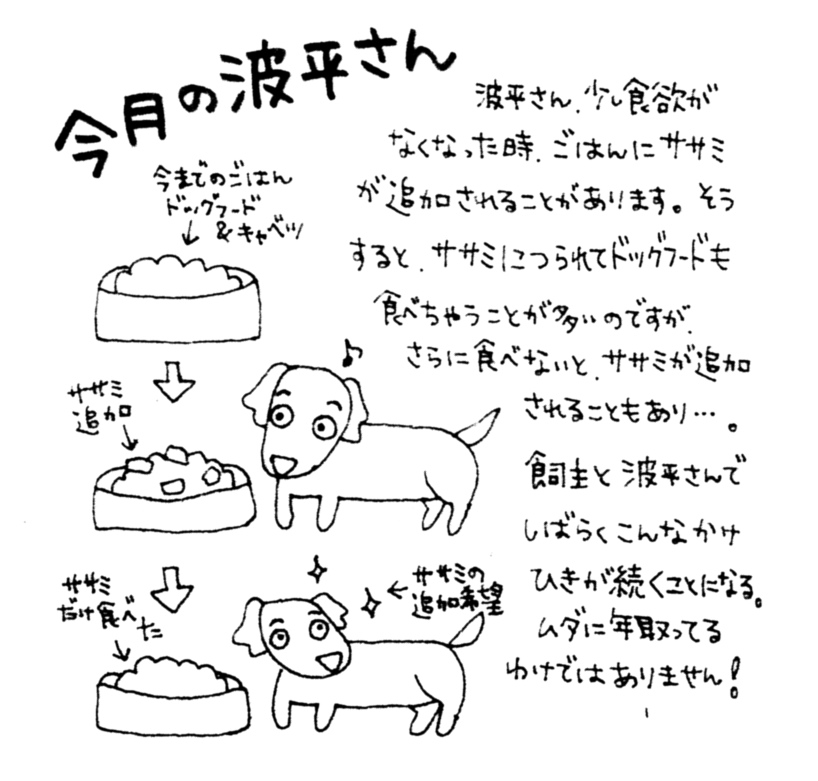 今月の波平さん
波平さん、少し食欲が
なくなった時、ごはんにササミ
が追加されることがあります。そう
すると、ササミにつられてドッグフードも
食べちゃうことが多いのですが、
さらに食べないと、ササミが追加
されることもあり…。
飼主と波平さんで
しばらくこんなかけ
ひきが続くことになる。
ムダに年取ってる
わけではありません!
今までのごはん
ドッグフード
&キャベツ
ササミ
追加
♪
ササミ
だけ食べた
ササミの
追加希望